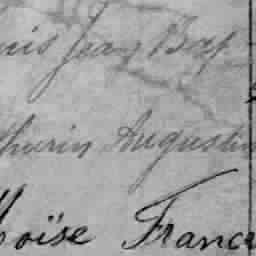 nis Jean Bap
thurin Augustin
Moïse France